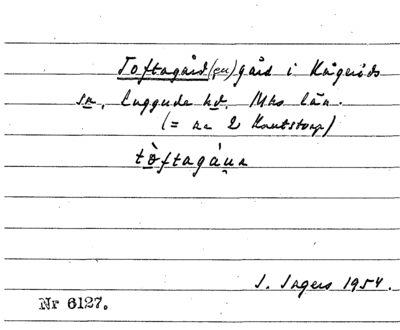 Toftagård(en) gård i Kågeröds
sn. Luggude hd. Mhs län.
(= nr 2 Knutstorp)
tòftagáṇa
I. Ingers 1954.
Nr 6127.